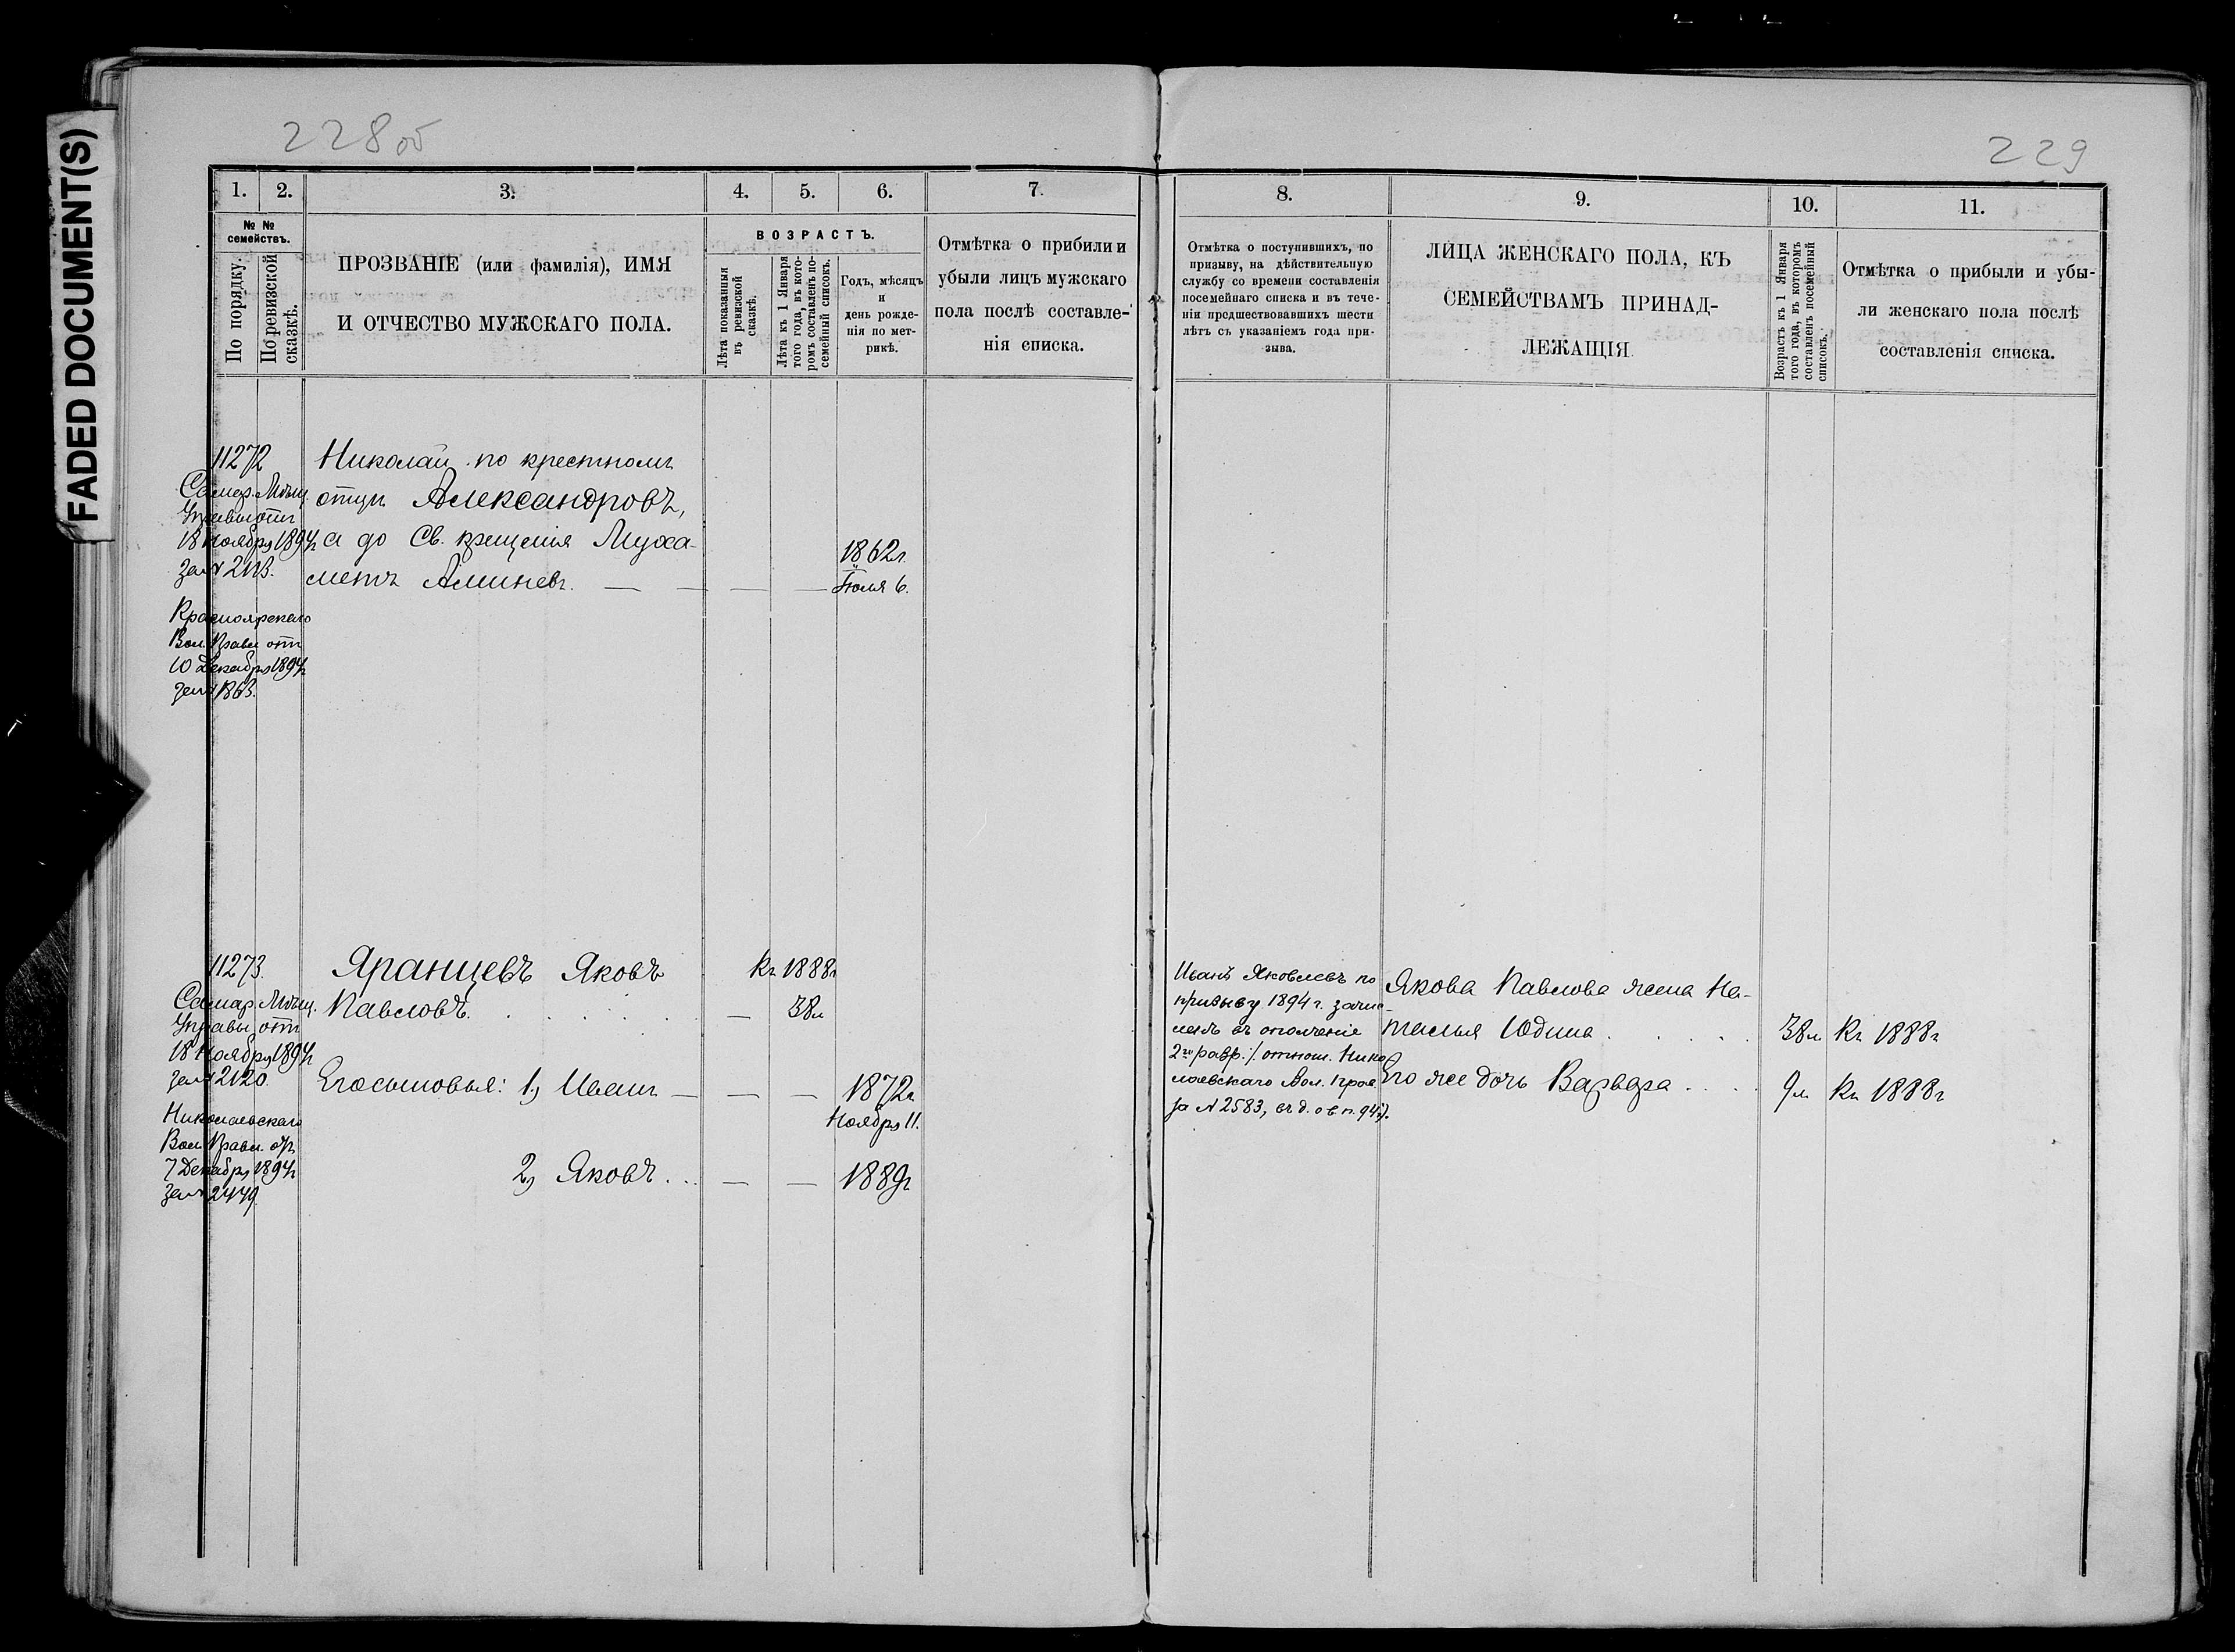 FADED DOCUMENT(S)
228 об
229
1.
2.
3.
4.
5.
6.
7.
8.
9.
10.
11.
№ №
семействъ.
По порядку.
По ревизской
сказкѣ.
ПРОЗВАНІЕ (или фамилія), ИМЯ
И ОТЧЕСТВО МУЖСКАГО ПОЛА.
ВОЗРАСТЪ.
Лѣта показанныя
въ ревизской
сказкѣ.
Лѣта къ 1 Января
того года, въ кото-
ромъ составленъ по-
семейный списокъ.
Годъ, мѣсяцъ
и
день рожде-
нія по мет-
рикѣ.
Отмѣтка о прибили и
убыли лицъ мужскаго
пола послѣ составле-
нія списка.
Отмѣтка о поступившихъ, по
призыву, на дѣйствительную
службу со времени составленія
посемейнаго списка и въ тече-
ніи предшествовавшихъ шести
лѣтъ съ указаніемъ года при-
зыва.
ЛИЦА ЖЕНСКАГО ПОЛА, КЪ
СЕМЕЙСТВАМЪ ПРИНАД-
ЛЕЖАЩІЯ
Возрастъ къ 1 Января
того года, въ которомъ
составленъ посемейный
списокъ.
Отмѣтка о прибыли и убы-
ли женскаго пола послѣ
составленія списка.
11272
Самар. Мѣщ.
Управы отъ
18 Ноября 1894 г
за № 2113.
Красноярскаго
Вол. Правл отъ
10 Декабря 1894 г
за № 1863.
Николай по крестномъ
отцѣ Александровъ,
а до Св. крещенія Муха-
метъ Аминевъ.
1862 г.
Іюля 6.
11273.
Самар. Мѣщ.
Управы отъ
18 Ноября 1894 г
за № 2120.
Николаевскаго
Вол. Правл. отъ
7 Декабря 1894 г
за № 2449.
Яранцевъ Яковъ
Павловъ.
къ 1888 г
38 л
Его сыновья: 1, Иванъ
1872 г
Ноября 11.
2, Яковъ
1889 г
Иванъ Яковлевъ по
призыву 1894 г. зачис-
ленъ въ ополченіе
2го разр. /. отнош. Нико
лаевскаго Вол. Прав.
за № 2583,
Якова Павлова жена На-
талья Юдина
38 л Къ 1888 г
Его же дочь Варвара
9 л Къ 1888 г